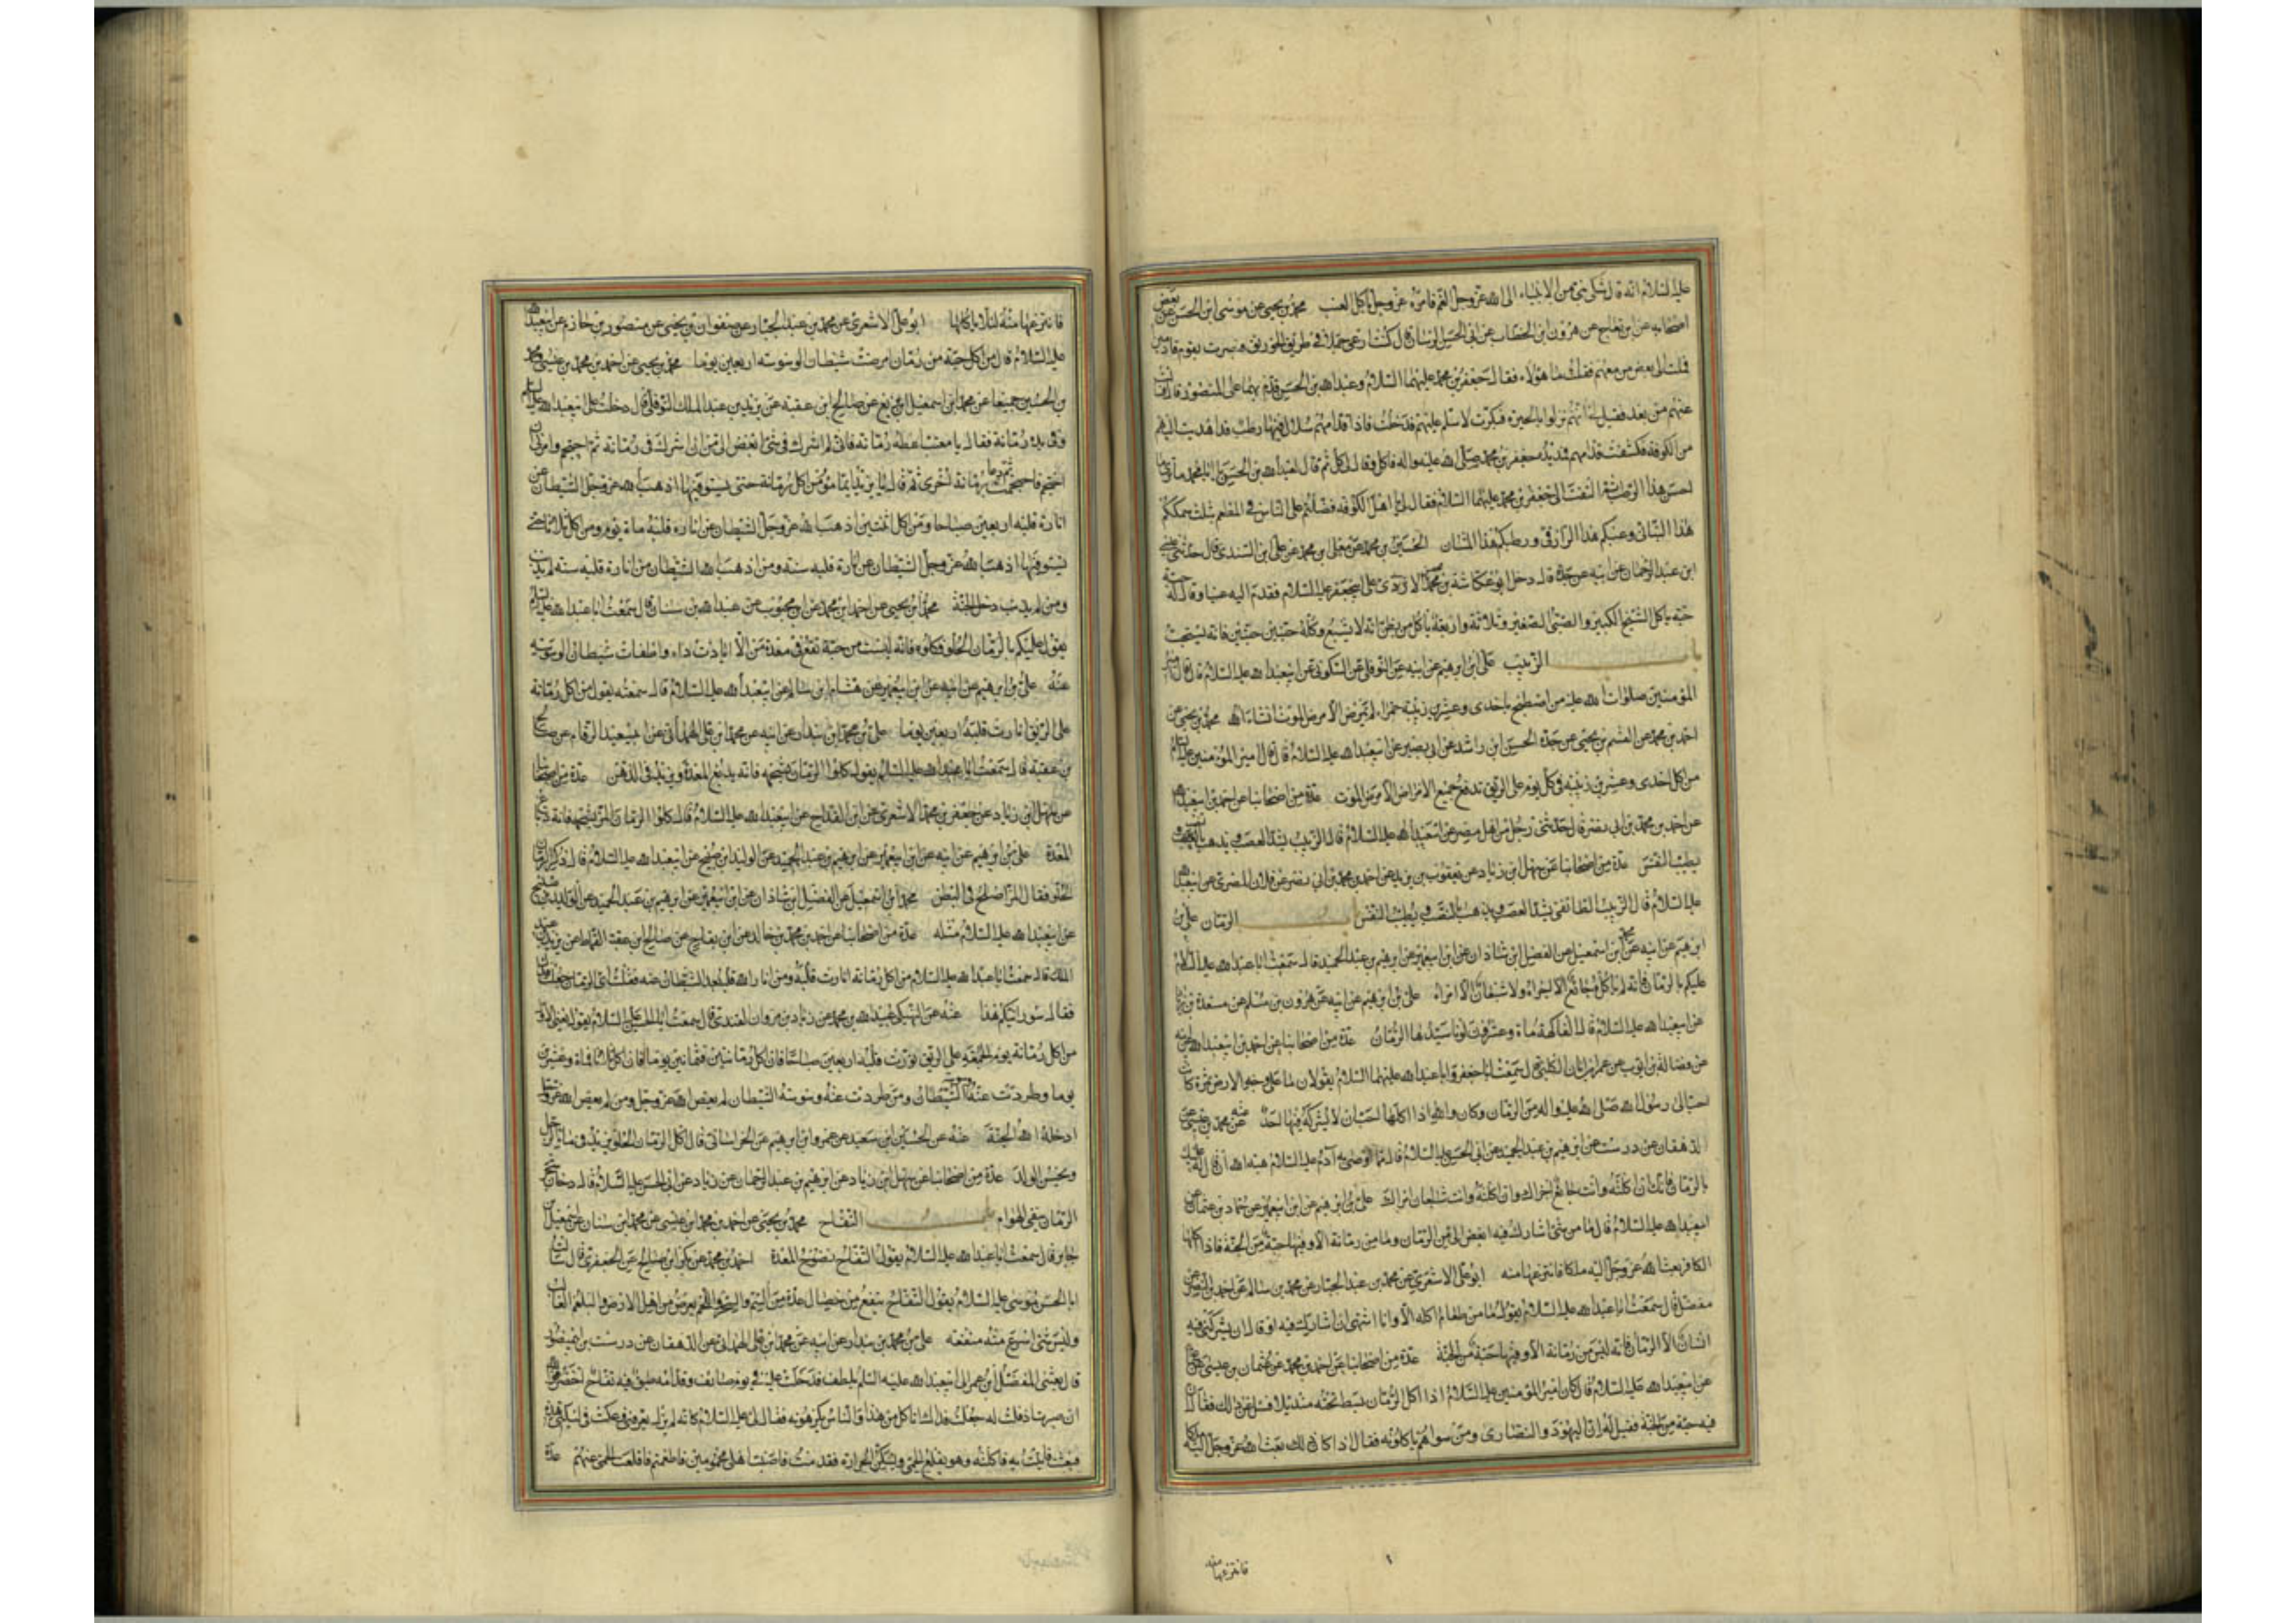 عليه السلام انه قال شكى نبي من الانبياء الى الله عز وجل الغم فامره عز وجل باكل العنب محمد بن يحيى عن موسى ابن الحسن عن بعض
اصحابه عن ابن بقاح عن هرون ابن الخطاب عن ابي الحسن الرسان قال كنت ارعى جمالي في طريق الخورنق فبصرت بقوم قادمين
فملت الى بعض من معهم فقلت ما هؤلاء فقال جعفر بن محمد عليهما السلام وعبد الله بن الحسن قدم بهما على المنصور قال
عنهم من بعد فقيل انهم نزلوا بالحيرة فبكرت لاسلم عليهم فدخلت فاذا قدامهم سلال فيها رطب قد اهديت اليهم
من الكوفة فكشفت قدامهم فمد يده جعفر بن محمد صلى الله عليه واله فاكل وقال لي كل ثم قال لعبد الله بن الحسن يا ابا محمد ما ترى ما
احسن هذا الرطب ثم التفت الى جعفر بن محمد عليهما السلام فقال لي يا اهل الكوفة فضلتم على الناس في المطعم بثلث سمككم
هذا البناني وعنبكم هذا الرازقي ورطبكم هذا المشان الحسين بن محمد عن معلى بن محمد عن علي ابن السندي قال حدثني عيسى
ابن عبد الرحمان عن ابيه عن جده قال دخل ابو عكاشة بن محصن الاسدي على ابي جعفر عليه السلام فقدم اليه عنبا وقال له حبة
حبة ياكل الشيخ الكبير والصبي الصغير وثلاثة واربعة ياكل من يظن انه لا يشبع وكله حبتين حبتين فانه يستحب
باب الزبيب علي ابن ابرهيم عن ابيه عن النوفلي عن السكوني عن ابي عبد الله عليه السلام قال قال امير
المؤمنين صلوات الله عليه من اصطبح باحدى وعشرين زبيبة حمراء لم يمرض الا مرض الموت انشاء الله محمد بن يحيى عن
احمد بن محمد عن القسم بن يحيى عن جده الحسن ابن راشد عن ابي بصير عن ابي عبد الله عليه السلام قال قال امير المؤمنين عليه السلام
من اكل احدى وعشرين زبيبة في كل يوم على الريق تدفع جميع الامراض الا مرض الموت عدة من اصحابنا عن احمد بن ابي عبد الله
عن احمد بن محمد بن ابي نصر قال حدثني رجل من اهل مصر عن ابي عبد الله عليه السلام قال الزبيب يشد العصب ويذهب بالنصب و
يطيب النفس عدة من اصحابنا عن سهل ابن زياد عن يعقوب بن يزيد عن احمد بن محمد بن ابي نصر عن فلان المصري عن ابي عبد الله
عليه السلام قال الزبيب الطائفي يشد العصب ويذهب بالنصب ويطيب النفس باب الرمان علي بن
ابرهيم عن ابيه عن محمد ابن اسمعيل عن الفضل ابن شاذان عن ابن ابي عمير عن ابرهيم بن عبد الحميد قال سمعت ابا عبد الله عليه السلام
عليكم بالرمان فانه لم ياكله جائع الا اجزاه ولا شبعان الا امراه علي بن ابرهيم عن ابيه عن هرون بن مسلم عن مسعدة بن زياد
عن ابي عبد الله عليه السلام قال الفاكهة مائة وعشرون لونا سيدها الرمان عدة من اصحابنا عن احمد بن ابي عبد الله عن ابيه
عن فضالة بن ايوب عن عمر بن ابان الكلبي قال سمعت ابا جعفر وابا عبد الله عليهما السلام يقولان ما على وجه الارض ثمرة كانت
احب الى رسول الله صلى الله عليه واله من الرمان وكان والله اذا اكلها احب ان لا يشركه فيها احد عنه عن محمد بن عيسى عن
الدهقان عن درست عن ابرهيم بن عبد الحميد عن ابي الحسن عليه السلام قال مما اوصى به آدم عليه السلام هبة الله ان قال له عليك
بالرمان فانك ان اكلته وانت جائع اجزاك وان اكلته وانت شبعان امراك علي بن ابرهيم عن ابن ابي عمير عن حماد بن عثمان عن
ابي عبد الله عليه السلام قال ما من شئ اشارك فيه ابغض الي من الرمان وما من رمانة الا وفيها حبة من الجنة فاذا اكلها
الكافر بعث الله عز وجل اليه ملكا فانتزعها منه ابو علي الاشعري عن محمد بن عبد الجبار عن محمد بن سالم عن احمد بن النضر عن
مفضل قال سمعت ابا عبد الله عليه السلام يقول ما من طعام اكله الا وانا اشتهي ان اشارك فيه او قال ان يشركني فيه
انسان الا الرمان فانه ليس من رمانة الا وفيها حبة من الجنة عدة من اصحابنا عن احمد بن محمد عن عثمان بن عيسى عن
عن ابي عبد الله عليه السلام قال كان امير المؤمنين عليه السلام اذا اكل الرمان بسط تحته منديلا فسئل عن ذلك فقال لان
فيه حبة من الجنة فقيل له فان اليهود والنصارى ومن سواهم ياكلونه فقال اذا كان ذلك بعث الله عز وجل اليه ملكا
فانتزعها منه
فانتزعها منه لئلا ياكلها ابو علي الاشعري عن محمد بن عبد الجبار عن صفوان بن يحيى عن منصور بن حازم عن ابي عبد الله
عليه السلام قال من اكل حبة من رمان امرضت شيطان الوسوسة اربعين يوما محمد بن يحيى عن احمد بن محمد بن عيسى ومحمد
بن الحسين جميعا عن محمد ابن اسمعيل ابن بزيع عن صالح ابن عقبة عن يزيد بن عبد الملك النوفلي قال دخلت على ابي عبد الله عليه السلام
وفي يده رمانة فقال يا معتب اعطه رمانة فاني لم اشرك في شئ ابغض الي من ان اشرك في رمانة ثم احتجم وامرني ان
احتجم فاحتجمت ثم دعا برمانة اخرى ثم قال يا يزيد ايما مؤمن اكل رمانة حتى يستوفيها اذهب الله عز وجل الشيطان عن
انارة قلبه اربعين صباحا ومن اكل اثنتين اذهب الله عز وجل الشيطان عن انارة قلبه مائة يوم ومن اكل ثلاثا حتى
يستوفيها اذهب الله عز وجل الشيطان عن انارة قلبه سنة ومن اذهب الله الشيطان عن انارة قلبه سنة لم يذنب
ومن لم يذنب دخل الجنة محمد بن يحيى عن احمد ابن محمد عن ابن محبوب عن عبد الله بن سنان قال سمعت ابا عبد الله عليه السلام
يقول عليكم بالرمان الحلو فكلوه فانه ليست من حبة تقع في معدة مؤمن الا ابادت داء واطفات شيطان الوسوسة
عنه علي بن ابرهيم عن ابيه عن ابن ابي عمير عن هشام ابن سالم عن ابي عبد الله عليه السلام قال سمعته يقول من اكل رمانة
على الريق انارت قلبه اربعين يوما علي بن محمد ابن بندار عن ابيه عن محمد ابن علي الهمداني عن ابي سعيد الرقام عن صالح
بن عقبة قال سمعت ابا عبد الله عليه السلام يقول كلوا الرمان بشحمه فانه يدبغ المعدة ويزيد في الذهن عدة من اصحابنا
عن سهل ابن زياد عن جعفر بن محمد الاشعري عن ابن القداح عن ابي عبد الله عليه السلام قال كلوا الرمان المز بشحمه فانه دباغ
المعدة علي بن ابرهيم عن ابيه عن ابن ابي عمير عن ابرهيم بن عبد الحميد عن الوليد ابن صبيح عن ابي عبد الله عليه السلام قال ذكر الرمان
الحلو فقال المز اصلح في البطن محمد ابن اسمعيل عن الفضل ابن شاذان عن ابن ابي عمير عن ابرهيم بن عبد الحميد عن الوليد بن صبيح
عن ابي عبد الله عليه السلام مثله عدة من اصحابنا عن احمد بن محمد بن خالد عن ابن بقاح عن صالح ابن عقبة القماط عن يزيد بن عبد
الملك قال سمعت ابا عبد الله عليه السلام من اكل رمانة انارت قلبه ومن انار الله قلبه بعد الشيطان عنه فقلت اي الرمان جعلت فداك
فقال سورانيكم هذا عنه عن النهيكي عبيد الله بن محمد عن زياد بن مروان القندي قال سمعت ابا الحسن عليه السلام يقول يعني الاول
من اكل رمانة يوم الجمعة على الريق نورت قلبه اربعين صباحا فان اكل رمانتين فثمانين يوما فان اكل ثلاثا فمائة وعشرين
يوما وطردت عنه وسوسة الشيطان ومن طردت عنه وسوسة الشيطان لم يعص الله عز وجل ومن لم يعص الله عز وجل
ادخله الله الجنة عنه عن الحسين ابن سعيد عن عمرو ابن ابرهيم عن الخراساني قال اكل الرمان الحلو يزيد في ماء الرجل
ويحسن الولد عدة من اصحابنا عن سهل ابن زياد عن ابرهيم بن عبد الرحمان عن زياد عن ابي الحسن عليه السلام قال دخان شجر
الرمان ينفي الهوام باب التفاح محمد بن يحيى عن احمد بن محمد ابن عيسى عن محمد ابن سنان عن اسمعيل بن
جابر قال سمعت ابا عبد الله عليه السلام يقول التفاح نضوح المعدة احمد بن محمد عن بكر ابن صالح عن الجعفري قال سمعت
ابا الحسن موسى عليه السلام يقول التفاح ينفع من خصال عدة من السم والسحر واللمم يعرض من اهل الارض والبلغم الغالب
وليس شئ اسرع منه منفعة علي بن محمد بن بندار عن ابيه عن محمد ابن علي الهمداني عن الدهقان عن درست بن ابي منصور
قال بعثني المفضل ابن عمر الى ابي عبد الله عليه السلم بلطف فدخلت عليه في يوم صائف وقدامه طبق فيه تفاح اخضر فوالله
ان صبرت ان قلت له جعلت فداك اتاكل من هذا والناس يكرهونه فقال لي عليه السلام كانه لم يزل يعرفني وعكت في ليلتي هذه
فبعثت فاتيت به فاكلته وهو يقلع الحمى ويسكن الحرارة فقدمت فاصبت اهلي محمومين فاطعمتهم فاقلعت الحمى عنهم عدة